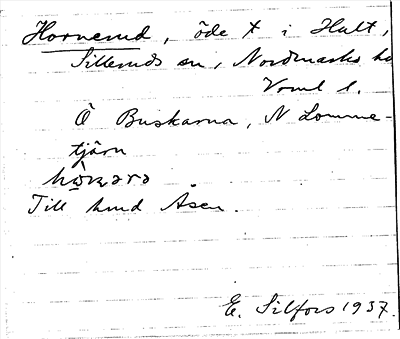 Hornerud, öde t i Hult,
Sillerud sn, Nordmarks hd
Vrml l.
Ö Buskarna, N Lomme-
tjärn
Till hmd Åsen.
E. Silfors 1937.